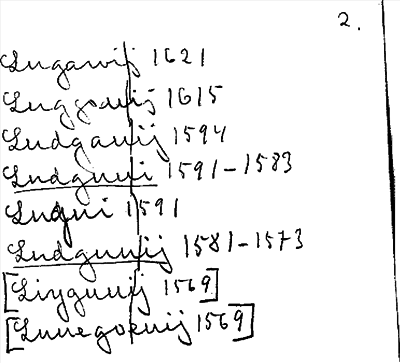 2.
Lugawij 1621
Luggouij 1615
Ludgauij 1594
Ludguui 1591-1583
Luqui 1591
Ludguuij 1581-1573
[Liyguuij 1569]
[Luuegoeuij 1569]